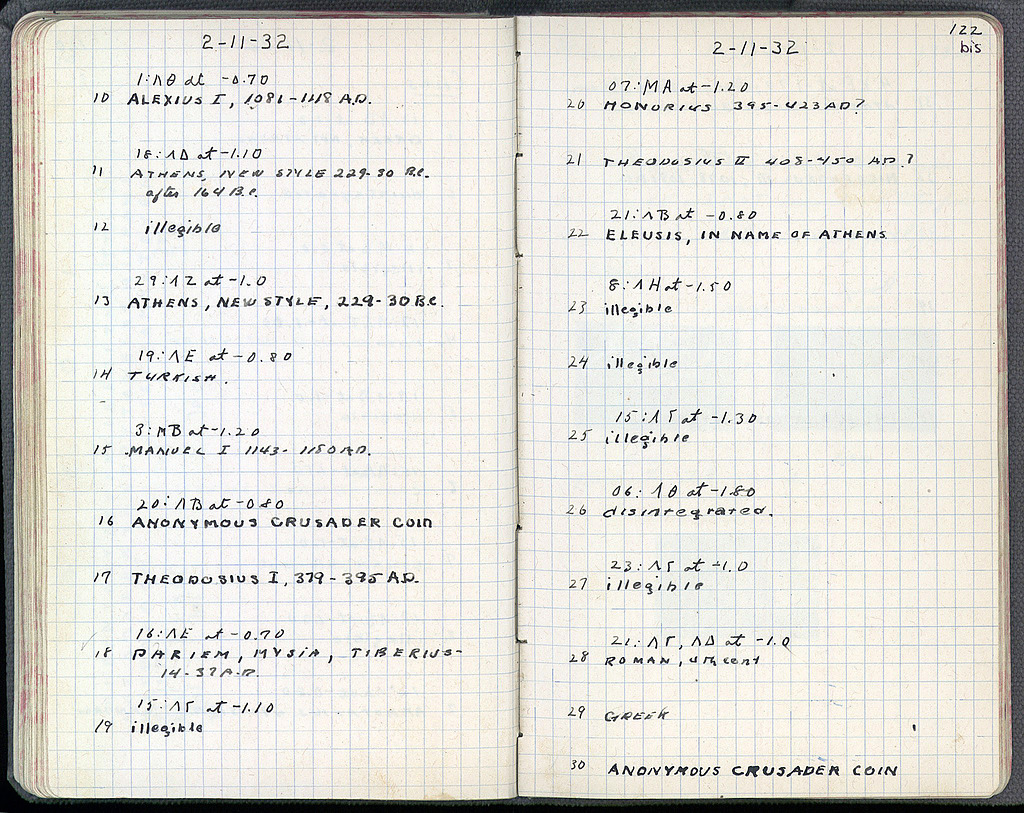 2-11-32
1:ΛΘ at -0.70
10 ALEXIUS I, 1081-1118 A.D.
18:ΛΔ at -1.10
11 ATHENS, NEW STYLE 229-30 B.C.
after 164 B.C.
12 illegible
29:ΛΖ at -1.0
13 ATHENS, NEW STYLE, 229-30 B.C.
19:ΛΕ at -0.80
14 TURKISH.
3:ΜΒ at -1.20
15 MANUEL I 1143-1180 A.D.
20:ΛΒ at -0.80
16 ANONYMOUS CRUSADER COIN
17 THEODOSIUS I, 379-395 A.D.
16:ΛΕ at -0.70
18 PARIEM, MYSIA, TIBERIUS-
14-37 A.D.
15:ΛΓ at -1.10
19 illegible
122
bis
2-11-32
07:ΜΑ at -1.20
20 HONORIUS 395-423 AD?
21 THEODOSIUS II 408-450 AD?
21:ΛΒ at -0.80
22 ELEUSIS, IN NAME OF ATHENS
8:ΛΗ at -1.50
23 illegible
24 illegible
15:ΛΓ at -1.30
25 illegible
06:ΛΘ at -1.80
26 disintegrated.
23:ΛΓ at -1.0
27 illegible
21:ΛΓ, ΛΔ at -1.0
28 ROMAN, 4th cent
29 GREEK
30 ANONYMOUS CRUSADER COIN